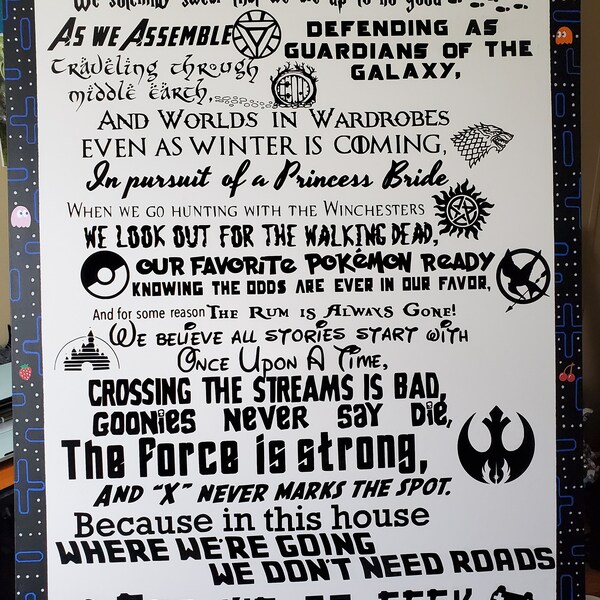 We solemnly swear that we are up to no good
As we Assemble
DEFENDING AS
GUARDIANS OF THE
GALAXY,
Traveling through
middle earth,
AND WORLDS IN WARDROBES
EVEN AS WINTER IS COMING,
In pursuit of a Princess Bride
WHEN WE GO HUNTING WITH THE WINCHESTERS
WE LOOK OUT FOR THE WALKING DEAD,
OUR FAVORITE POKéMON READY
KNOWING THE ODDS ARE EVER IN OUR FAVOR,
And for some reason THE RUM IS ALWAYS GONE!
WE BELIEVE ALL STORIES START WITH
ONCE UPON A TIME,
CROSSING THE STREAMS IS BAD,
GOONieS NeVeR SaY Die,
The Force is strong,
AND "X" NEVER MARKS THE SPOT.
Because in this house
WHERE WE'RE GOING
WE DON'T NEED ROADS